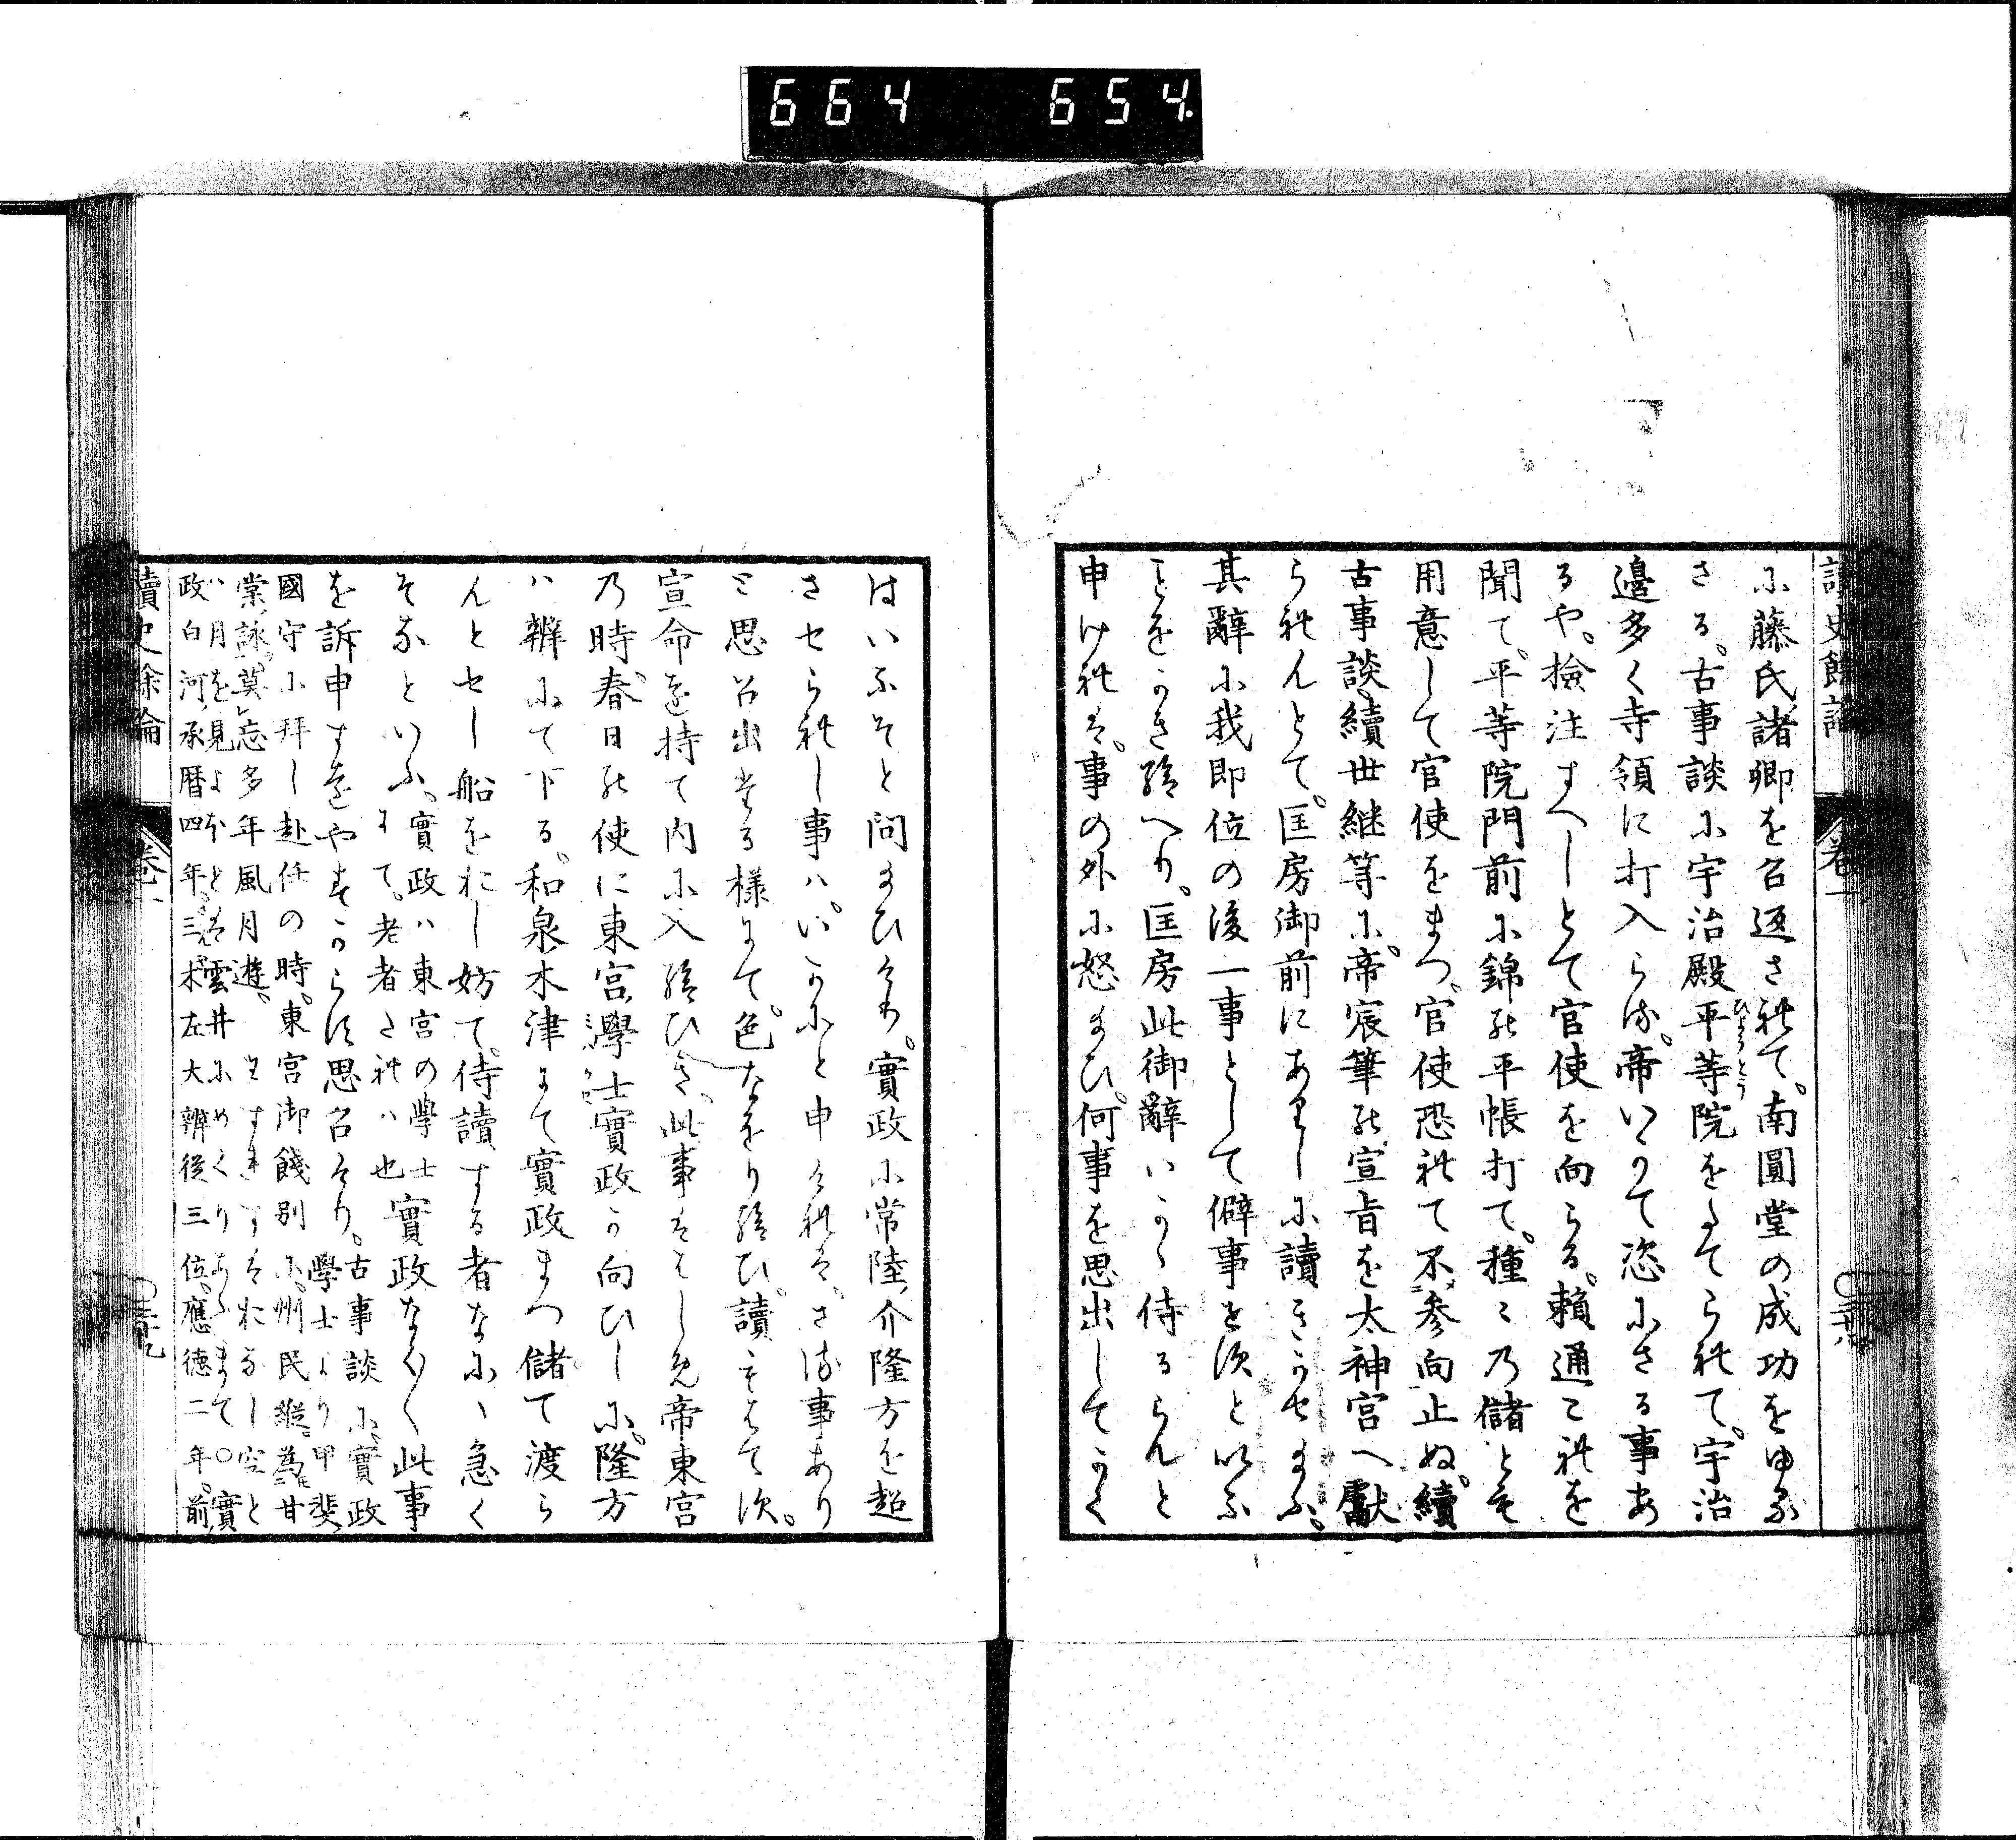 664 654
讀史餘論 卷一 三十八
に藤氏諸卿を召返されて。南圓堂の成功をゆるさる。古事談に宇治殿平等院をたてられて。宇治
邊多く寺領に打入らる。帝いかて恣にさる事あ
るや。撿注すへしとて官使を向らる。賴通これを
聞て。平等院門前に錦の平帳打て。種〻の儲とも
用意して官使をまつ。官使恐れて不參向止ぬ。續
古事談續世継等に。帝宸筆の宣旨を太神宮へ獻
られんとて。匡房御前にありしに讀きかせまふ。
其辭に我即位の後一事として僻事せすと以ふ
ことをかき給へり。匡房此御辭いかゝ侍るらんと
申けれは。事の外に怒まひ。何事を思出してかく
はいふそと問まひしかは。實政に常陸介隆方を超
させられし事ハ。いかにと申されは。さる事あり
と思召出たる樣にて。色なをり給ひ。讀もはてす。
宣命を持て内に入給ひき。此事はしめ帝東宮
乃時。春日の使に東宮學士實政か向ひしに。隆方
ハ辨にて下る。和泉木津にて實政まつ儲て渡ら
んとせし船をおし妨て。侍讀する者なに〻急く
そなといふ。實政ハ東宮の學士にて。老者されハ也實政なく〳〵此事
を訴申すをやすからす思召けり。古事談に。實政學士より甲斐
國守に拜し赴任の時。東宮御餞別に。州民縱爲甘
棠詠。莫忘多年風月遊。わすれすはおなし空と
ハ月を見よほとは雲井にめくりあふまて〇實
政白河承暦四年。三木左大辨從三位。應徳二年。前
讀史餘論 卷一 三十九